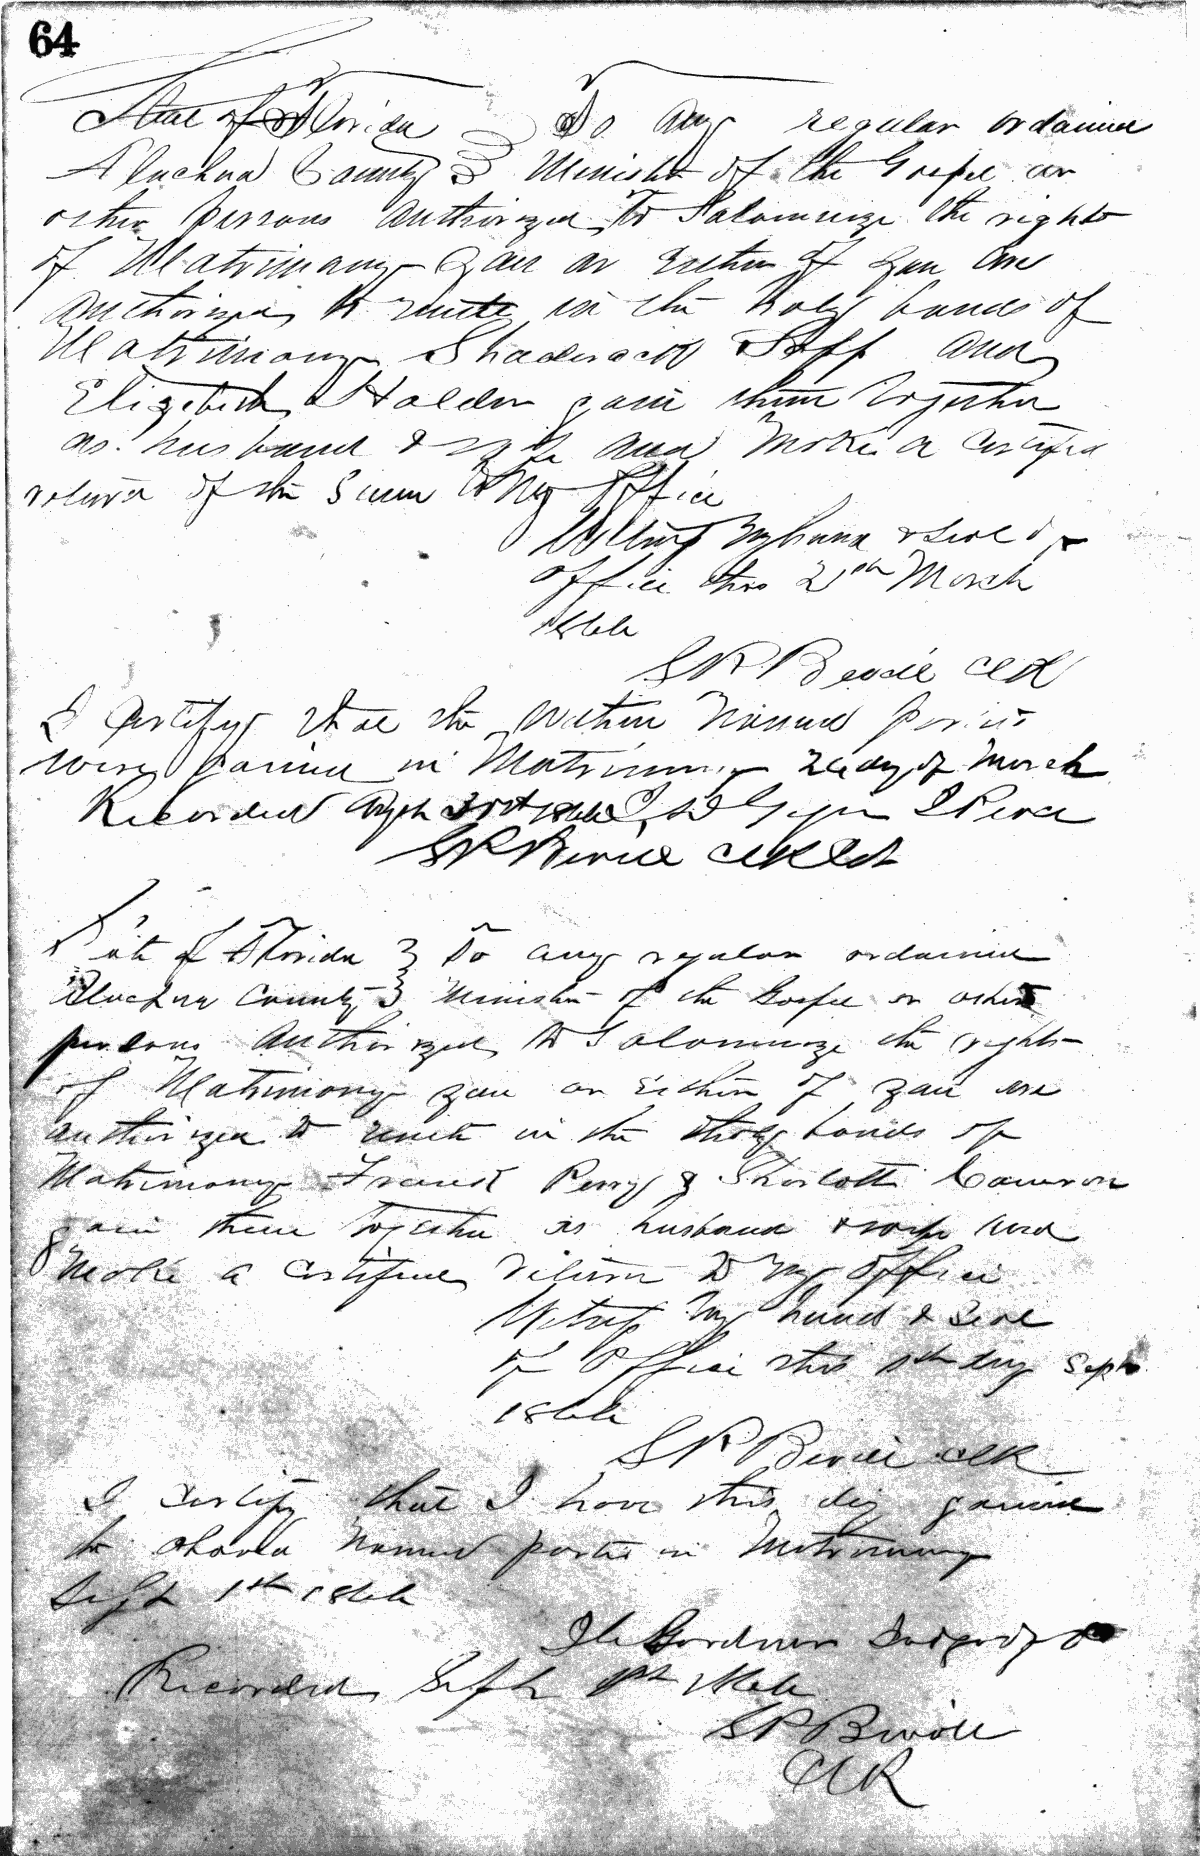 64
State of Florida } To any regular ordained
Alachua County } Minister of the Gospel or
other persons authorized to Solomnize the rights
of Matrimony you or Either of you are
authorized to unite in the holy bands of
Matrimony Shaderack Sapp and
Elizebeth Holder join them together
as husband & wife and make a certified
return of the same to my Office
Witness my hand & Seal of
office this 2nd March
1866
S P Bevill Clk
I Certify that the within named parties
were joined in Matrimony 26 day of March
Recorded 1866 J Peace
S P Bevill Clk
State of Florida } To any regular ordained
Alachua County } Minister of the Gospel or other
persons authorized to Solomnize the rights
of Matrimony you or Either of you are
authorized to unite in the holy bands of
Matrimony Francis Perry & Sharlotte Cameron
join them together as husband & wife and
make a certified return to my office
Witness my hand & Seal
of Office this 1st day Sept
1866
S P Bevill Clk
I certify that I have this day joined
the above named parties in Matrimony
Sept 1st 1866
Gardner Judge of
Recorded Sept 1st 1866
S P Bevill
Clk